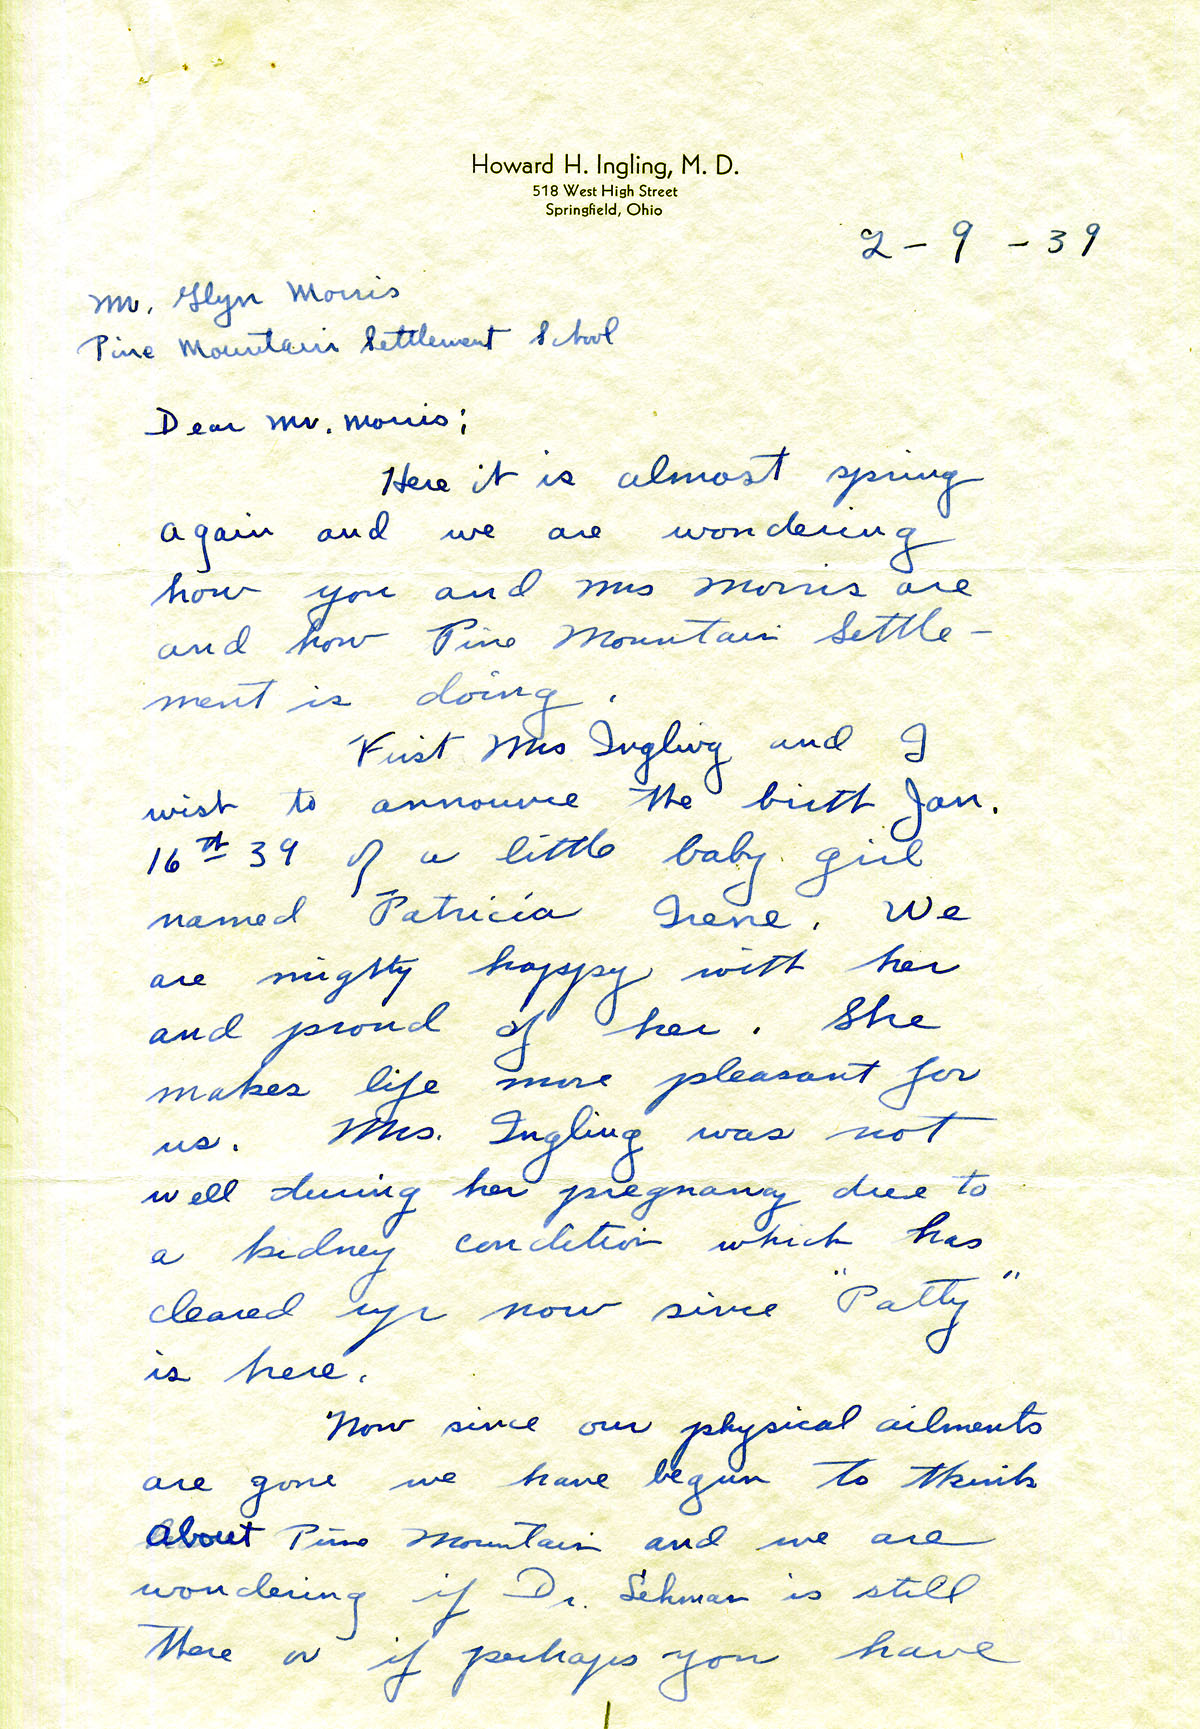 Howard H. Ingling, M. D.
518 West High Street
Springfield, Ohio
2 - 9 - 39
Mr. Glyn Morris
Pine Mountain Settlement School
Dear Mr. Morris;
Here it is almost spring
again and we are wondering
how you and Mrs Morris are
and how Pine Mountain Settle-
ment is doing.
First Mrs Ingling and I
wish to announce the birth Jan.
16th 39 of a little baby girl
named Patricia Irene. We
are mighty happy with her
and proud of her. She
makes life more pleasant for
us. Mrs. Ingling was not
well during her pregnancy due to
a kidney condition which has
cleared up now since "Patty"
is here.
Now since our physical ailments
are gone we have begun to think
about Pine Mountain and we are
wondering if Dr. Lehman is still
there or if perhaps you have
1